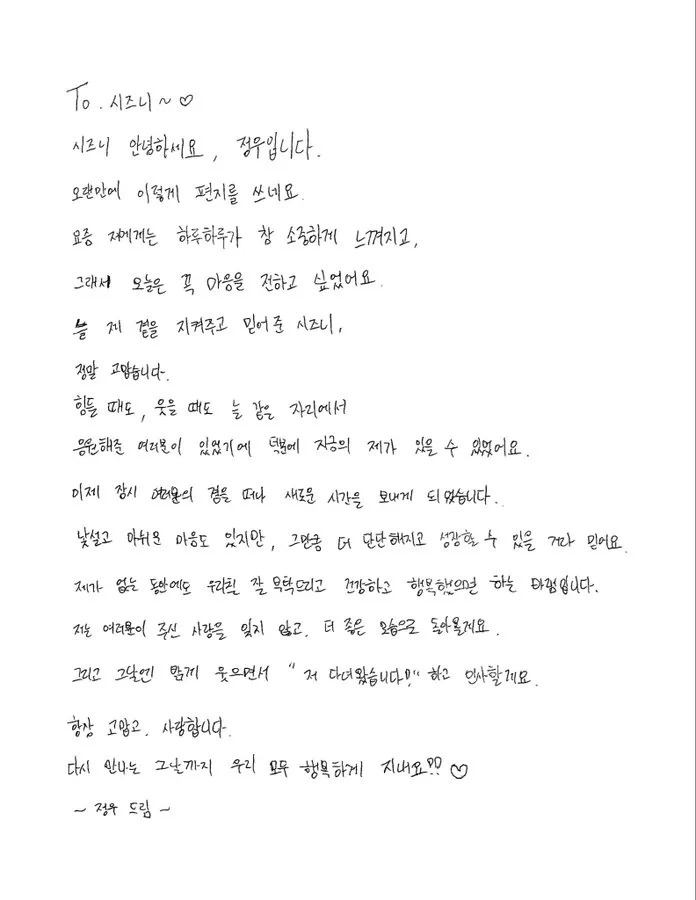 To. 시즈니~♡
시즈니 안녕하세요, 정우입니다.
오랜만에 이렇게 편지를 쓰네요.
요즘 저에게는 하루하루가 참 소중하게 느껴지고,
그래서 오늘은 꼭 마음을 전하고 싶었어요.
늘 제 곁을 지켜주고 믿어 준 시즈니,
정말 고맙습니다.
힘들 때도, 웃을 때도 늘 같은 자리에서
응원해준 여러분이 있었기에 덕분에 지금의 제가 있을 수 있었어요.
이제 잠시 여러분의 곁을 떠나 새로운 시간을 보내게 되었습니다.
낯설고 아쉬운 마음도 있지만, 그만큼 더 단단해지고 성장할 수 있을 거라 믿어요.
제가 없는 동안에도 우리칠 잘 부탁드리고 건강하고 행복했으면 하는 바램입니다.
저는 여러분이 주신 사랑을 잊지 않고, 더 좋은 모습으로 돌아올게요.
그리고 그날엔 밝게 웃으면서 "저 다녀왔습니다!" 하고 인사할게요.
항상 고맙고, 사랑합니다.
다시 만나는 그날까지 우리 모두 행복하게 지내요?? ♡
~ 정우 드림 ~